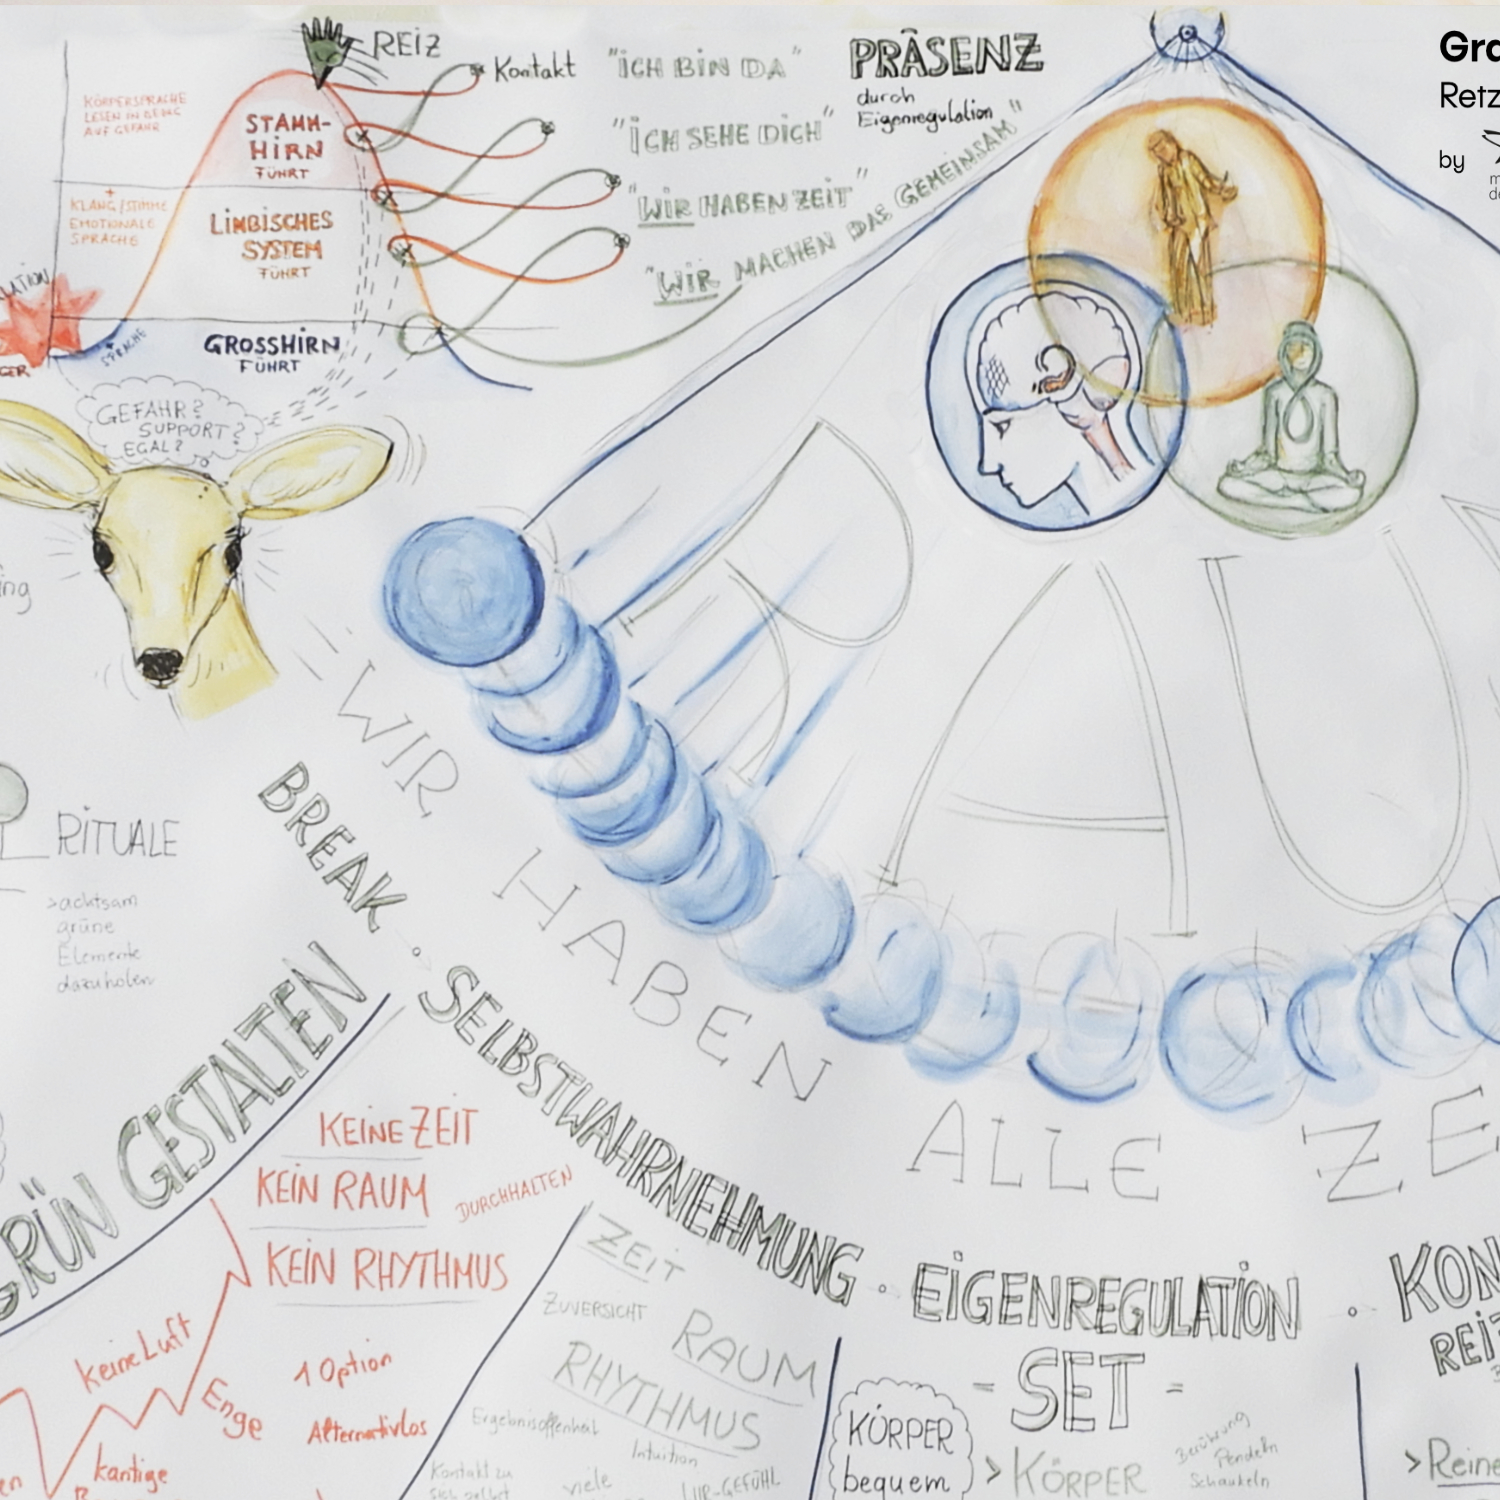 REIZ
Kontakt
"ICH BIN DA"
PRÄSENZ
durch
Eigenregulation
"ICH SEHE DICH"
"WIR HABEN ZEIT"
"WIR MACHEN DAS GEMEINSAM"
Gra
Retz
by
KÖRPERSPRACHE
LESEN IN
AUF GEFAHR
STAMM-
HIRN
FÜHRT
+
KLANG/STIMME
EMOTIONALE
SPRACHE
LIMBISCHES
SYSTEM
FÜHRT
+
SPRACHE
GROSSHIRN
FÜHRT
GEFAHR?
SUPPORT?
EGAL?
RAU
WIR HABEN ALLE ZE
RITUALE
>achtsam
grüne
Elemente
dazuholen
BREAK · SELBSTWAHRNEHMUNG · EIGENREGULATION · KON
REIZ
- SET -
GRÜN GESTALTEN
KEINE ZEIT
KEIN RAUM
DURCHHALTEN
KEIN RHYTHMUS
keine Luft
Enge
1 Option
Alternativlos
kantige
ZEIT
ZUVERSICHT
RAUM
RHYTHMUS
Ergebnisoffenheit
Intuition
Kontakt zu
sich selbst
viele
WIR-GEFÜHL
KÖRPER
bequem
> KÖRPER
Berührung
Pendeln
Schaukeln
> Reine